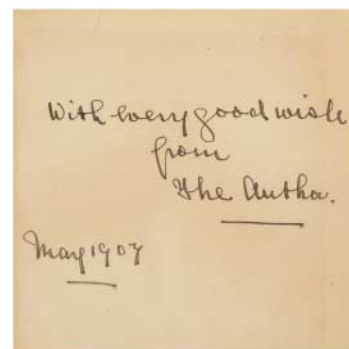 With every good wish
from
The Author.
May 1907